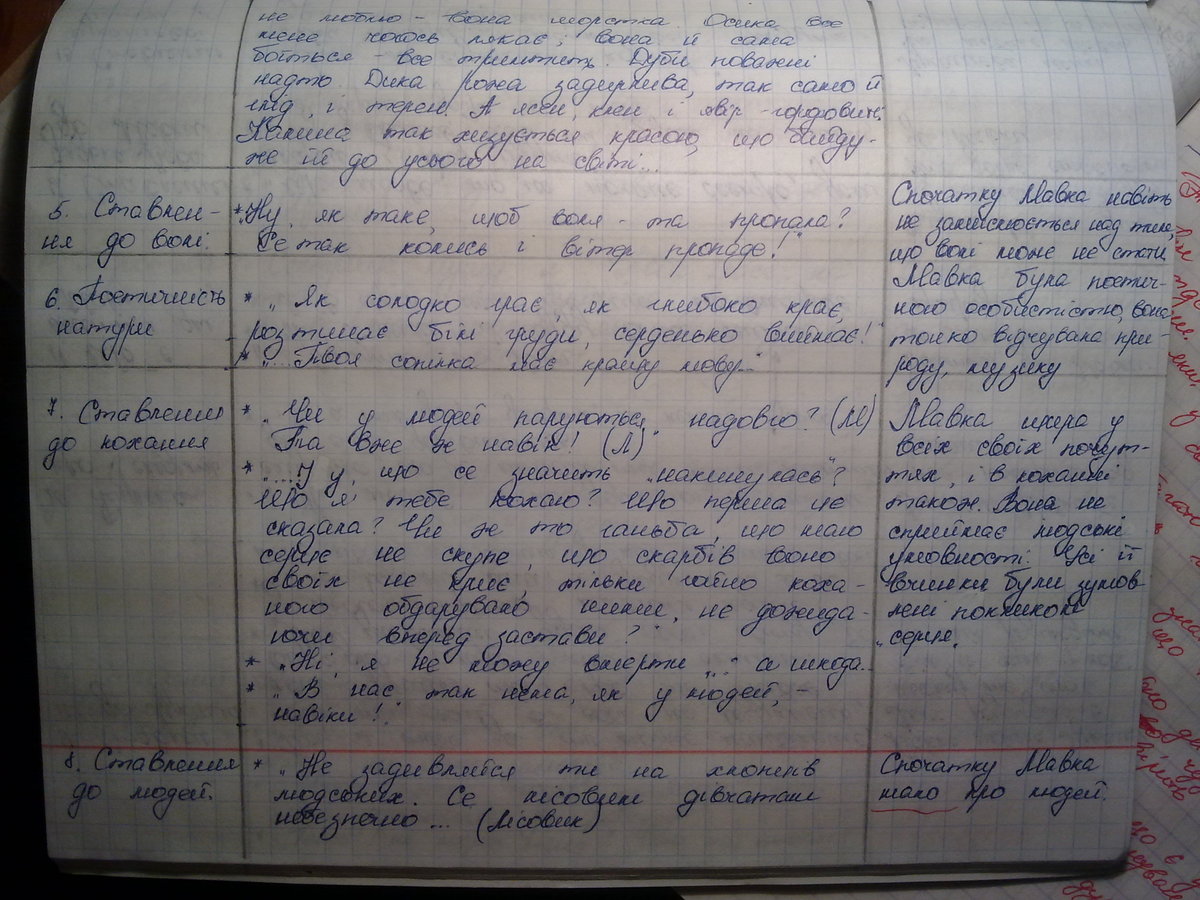 не люблю - вона шорстка. Осика все
мене чогось лякає; вона й сама
боїться - все тремтить. Дуби поважні
надто. Дика рожа задирлива, так само й
глід, і терен. А ясен, клен і явір - гордовиті.
Калина так хизується красою, що байду-
же їй до усього на світі...
5. Ставлен-
ня до волі.
* „Ну, як таке, щоб воля - та пропала?
Се так колись і вітер пропаде!"
Спочатку Мавка навіть
не замислюється над тим,
що волі може не стати.
6. Поетичність
натури
* „Як солодко грає, як глибоко крає,
розтинає білі груди, серденько виймає!"
* „...Твоя сопілка має кращу мову..."
Мавка була поетич-
ною особистістю, вона
тонко відчувала при-
роду, музику
7. Ставлення
до кохання
* „Чи у людей паруються надовго? (М)
Та вже ж навік! (Л)
* „...І у, що се значить „накинулась"?
Що я тебе кохаю? Що перша це
сказала? Чи ж то ганьба, що маю
серце не скупе, що скарбів воно
своїх не криє, тільки гойно коха-
ного обдарувало ними, не дожида-
ючи вперед застави?"
* „Ні, я не можу вмерти..." а шкода...
* „В нас так нема, як у людей, -
навіки!"
Мавка щира у
всіх своїх почут-
тях, і в коханні
також. Вона не
сприймає людські
умовності. Усі її
вчинки були зумов-
лені покликом
серця.
8. Ставлення
до людей.
* „Не задивляйся ти на хлопців
людських. Се лісовим дівчатам
небезпечно... (Лісовик)
Спочатку Мавка
мало про людей.